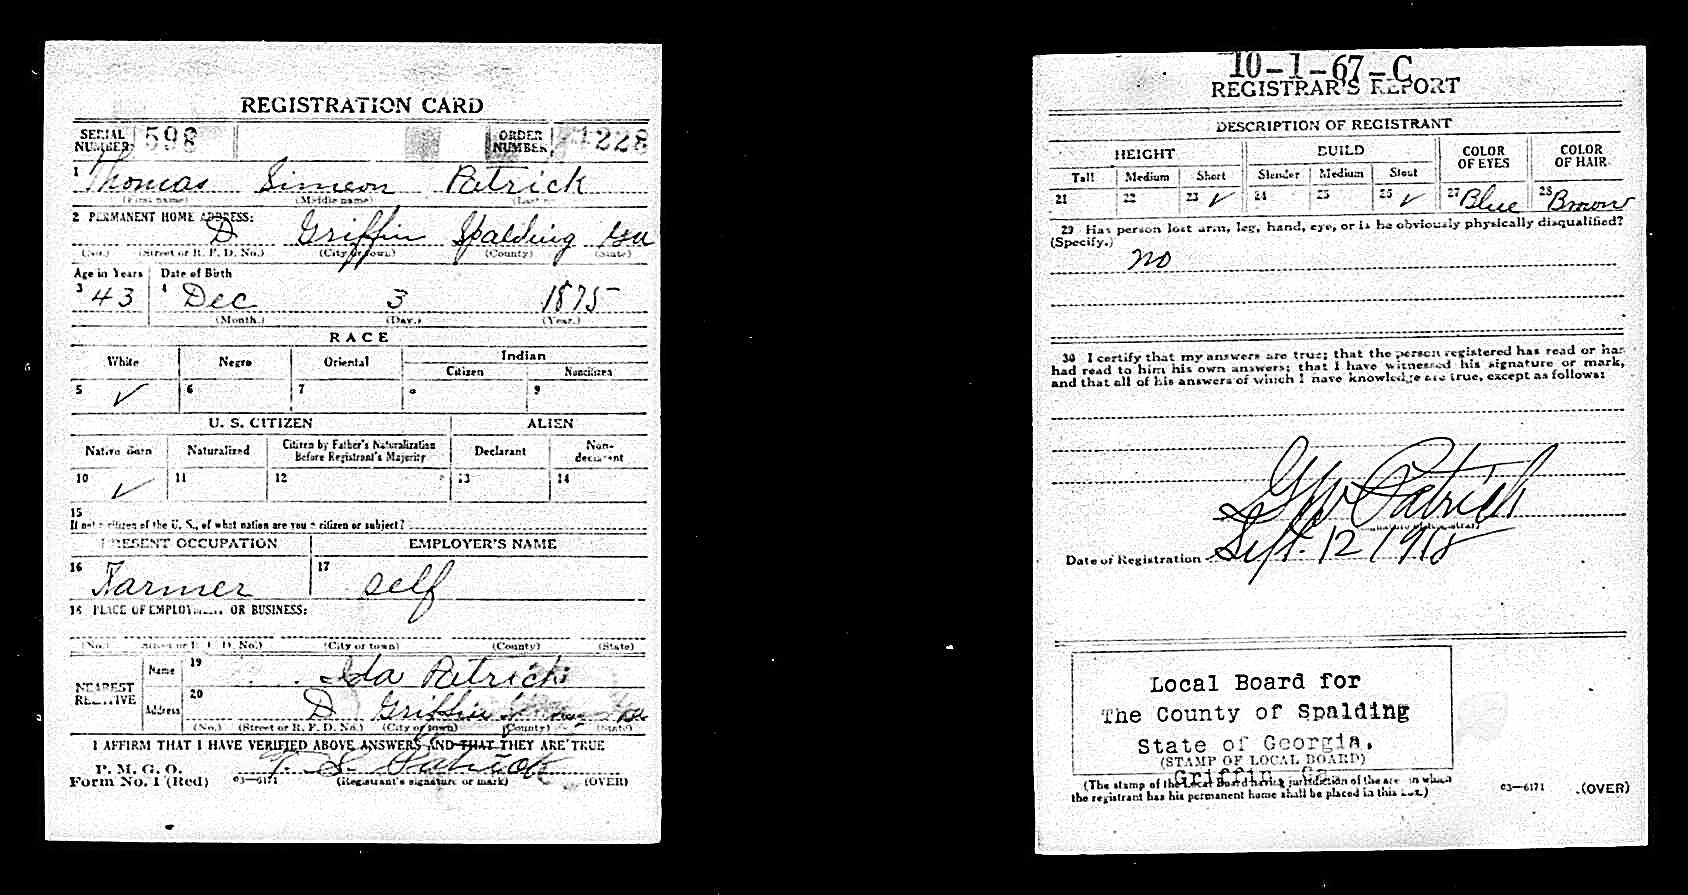 REGISTRATION CARD
SERIAL NUMBER 598 ORDER NUMBER 1228
1 Thomas Simeon Patrick
(First name) (Middle name) (Last
2 PERMANENT HOME ADDRESS:
D Griffin Spalding Ga
(No.) (Street or R. F. D. No.) (City or town) (County) (State)
Age in Years Date of Birth
3 43 4 Dec 3 1875
(Month.) (Day.) (Year.)
RACE
White Negro Oriental Indian
Citizen Noncitizen
5 ✓ 6 7 8 9
U. S. CITIZEN ALIEN
Native Born Naturalized Citizen by Father's Naturalization Before Registrant's Majority Declarant Non-declarant
10 ✓ 11 12 13 14
15
If not a citizen of the U. S., of what nation are you a citizen or subject?
PRESENT OCCUPATION EMPLOYER'S NAME
16 Farmer 17 self
18 PLACE OF EMPLOYMENT OR BUSINESS:
(No.) (Street or R. F. D. No.) (City or town) (County) (State)
NEAREST RELATIVE Name 19 Ida Patrick
Address 20 D Griffin Ga
(No.) (Street or R. F. D. No.) (City or town) (County) (State)
I AFFIRM THAT I HAVE VERIFIED ABOVE ANSWERS AND THAT THEY ARE TRUE
P. M. G. O.
Form No. 1 (Red) 03—6171 T. S. Patrick
(Registrant's signature or mark) (OVER)
10-1-67-C
REGISTRAR'S REPORT
DESCRIPTION OF REGISTRANT
HEIGHT BUILD COLOR OF EYES COLOR OF HAIR
Tall Medium Short Slender Medium Stout
21 22 23 ✓ 24 25 26 ✓ 27 Blue 28 Brown
29 Has person lost arm, leg, hand, eye, or is he obviously physically disqualified?
(Specify.)
no
30 I certify that my answers are true; that the person registered has read or has
had read to him his own answers; that I have witnessed his signature or mark,
and that all of his answers of which I have knowledge are true, except as follows:
G W Patrick
Date of Registration Sept. 12 1918
Local Board for
The County of Spalding
State of Georgia,
(STAMP OF LOCAL BOARD)
Griffin, Ga.
(The stamp of the Local Board having jurisdiction of the area in which
the registrant has his permanent home shall be placed in this box.)
03—6171 (OVER)